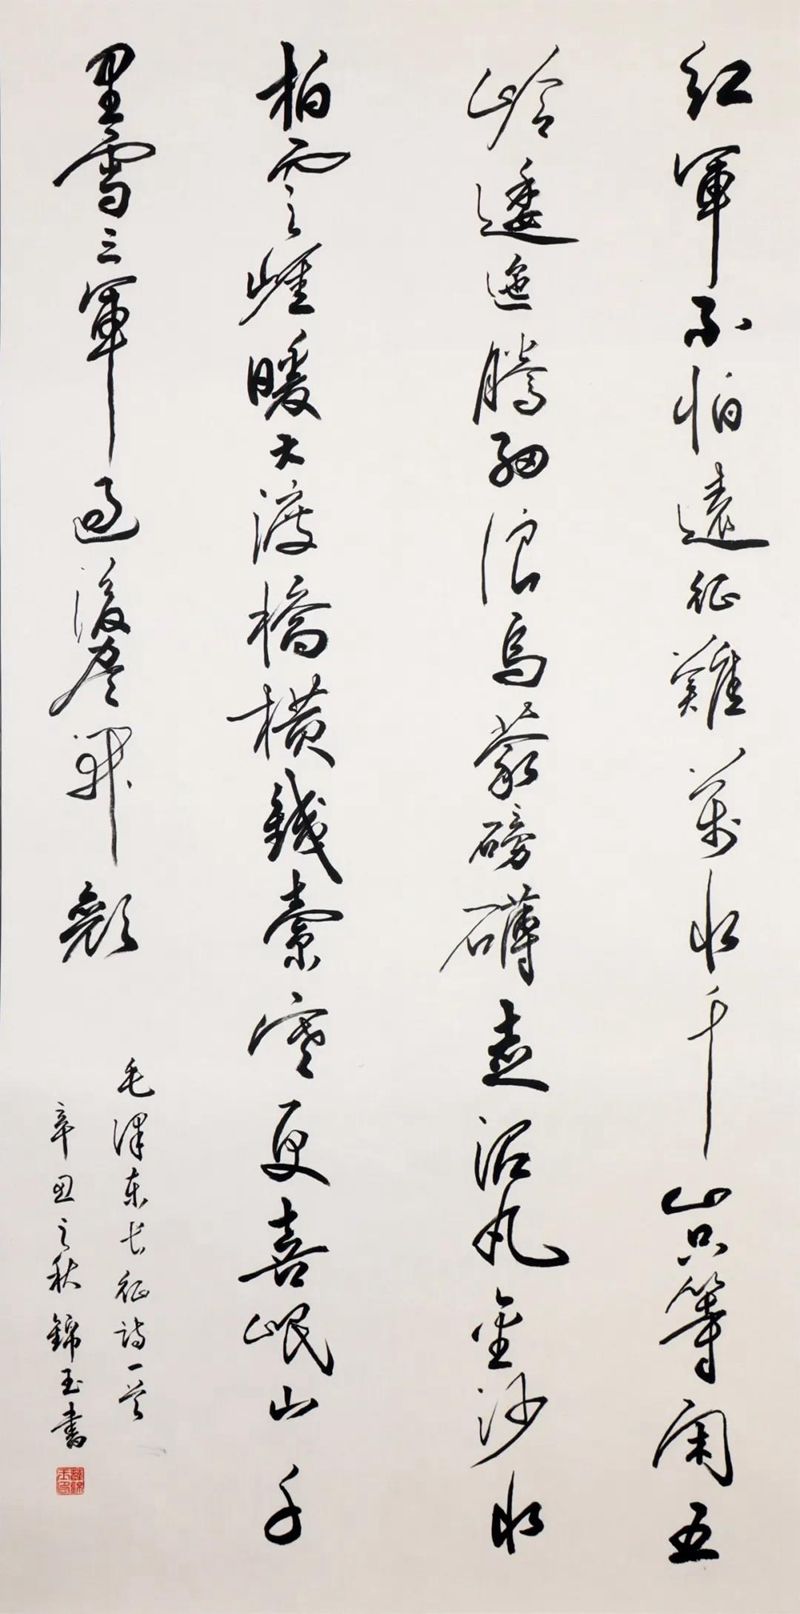 紅軍不怕遠征難萬水千山只等閑五
嶺逶迤騰細浪烏蒙磅礴走泥丸金沙水
柏雲崖暖大渡橋橫鐵索寒更喜岷山千
里雪三軍過後盡開顏
毛澤東长征詩一首
辛丑之秋錦玉書